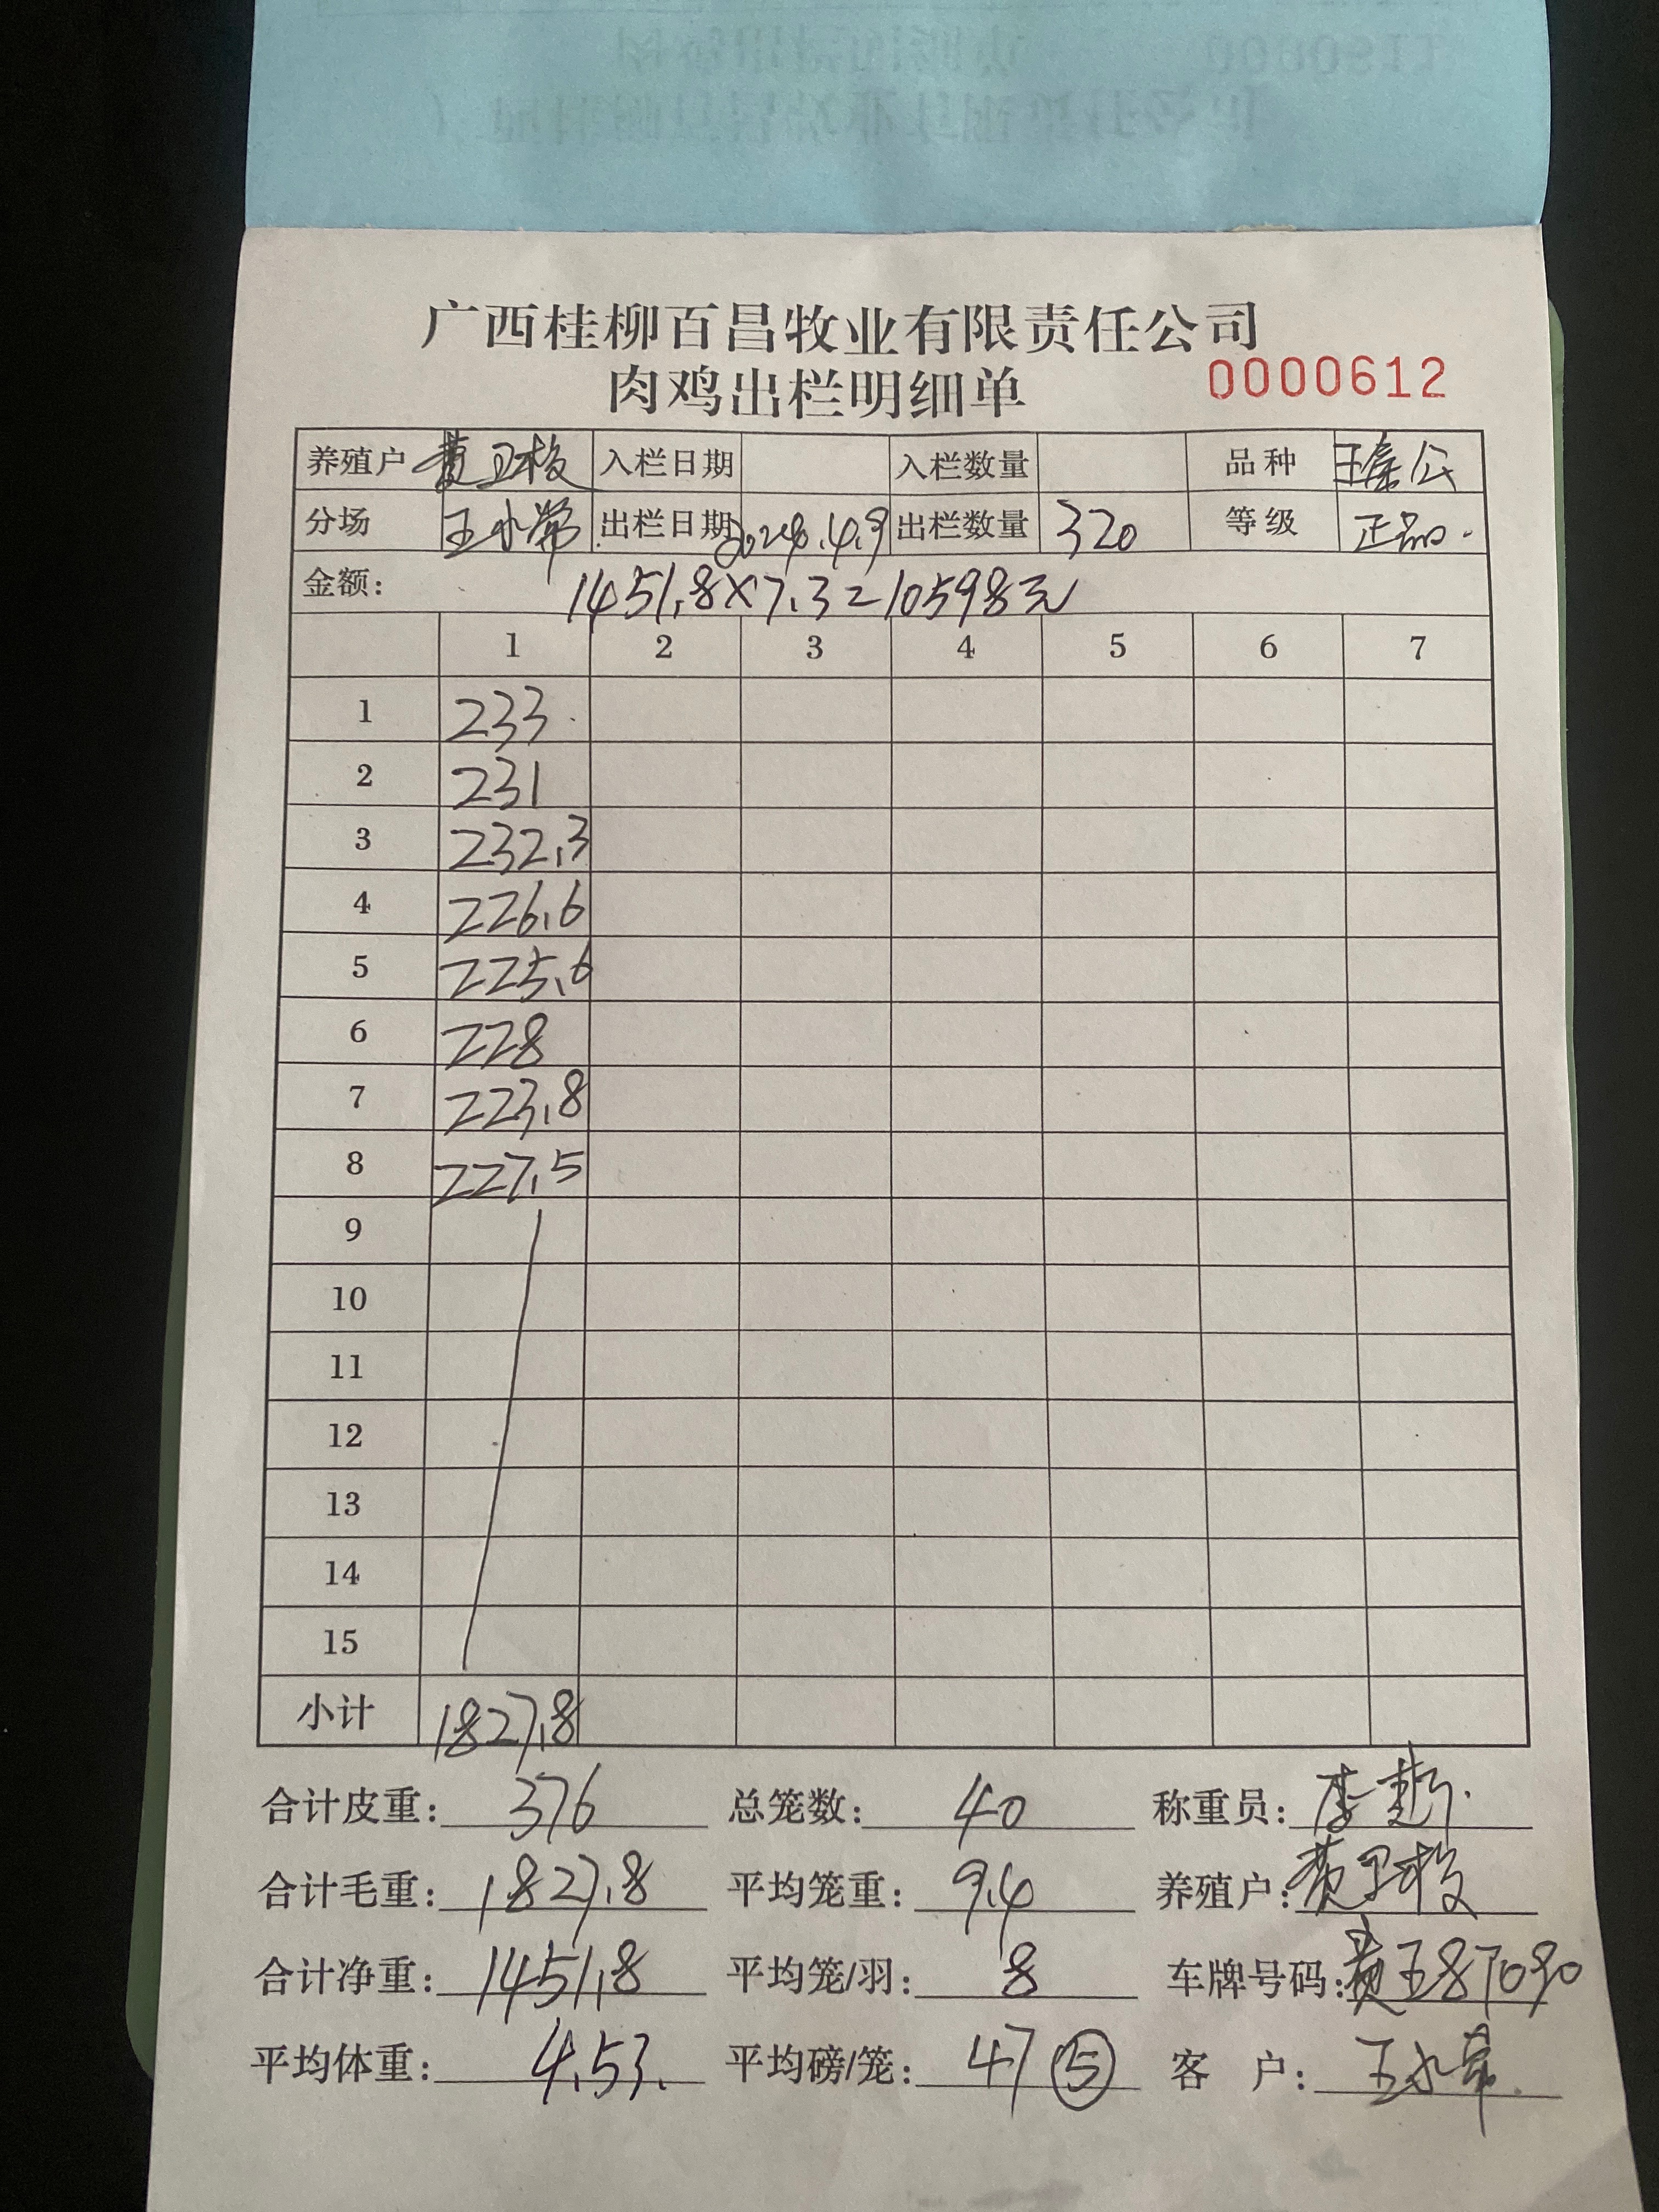 广西桂柳百昌牧业有限责任公司
肉鸡出栏明细单 0000612
养殖户 黄卫枚 入栏日期 入栏数量 品种 公
分场 王水常 出栏日期 2024.4.9 出栏数量 320 等级 正品.
金额: 1451.8×7.3=10598元
1 2 3 4 5 6 7
1 233
2 231
3 232.3
4 226.6
5 225.6
6 228
7 223.8
8 227.5
9
10
11
12
13
14
15
小计 1827.8
合计皮重: 376 总笼数: 40 称重员: 李
合计毛重: 1827.8 平均笼重: 9.4 养殖户: 黄卫枚
合计净重: 1451.8 平均笼/羽: 8 车牌号码: 87090
平均体重: 4.53. 平均磅/笼: 47 ⑤ 客户: 王水常